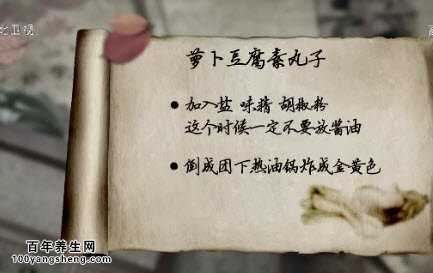 北卫视
萝卜豆腐素丸子
● 加入盐 味精 胡椒粉
这个时候一定不要放酱油
● 倒成团下热油锅炸成金黄色
百年养生网
100yangsheng.com